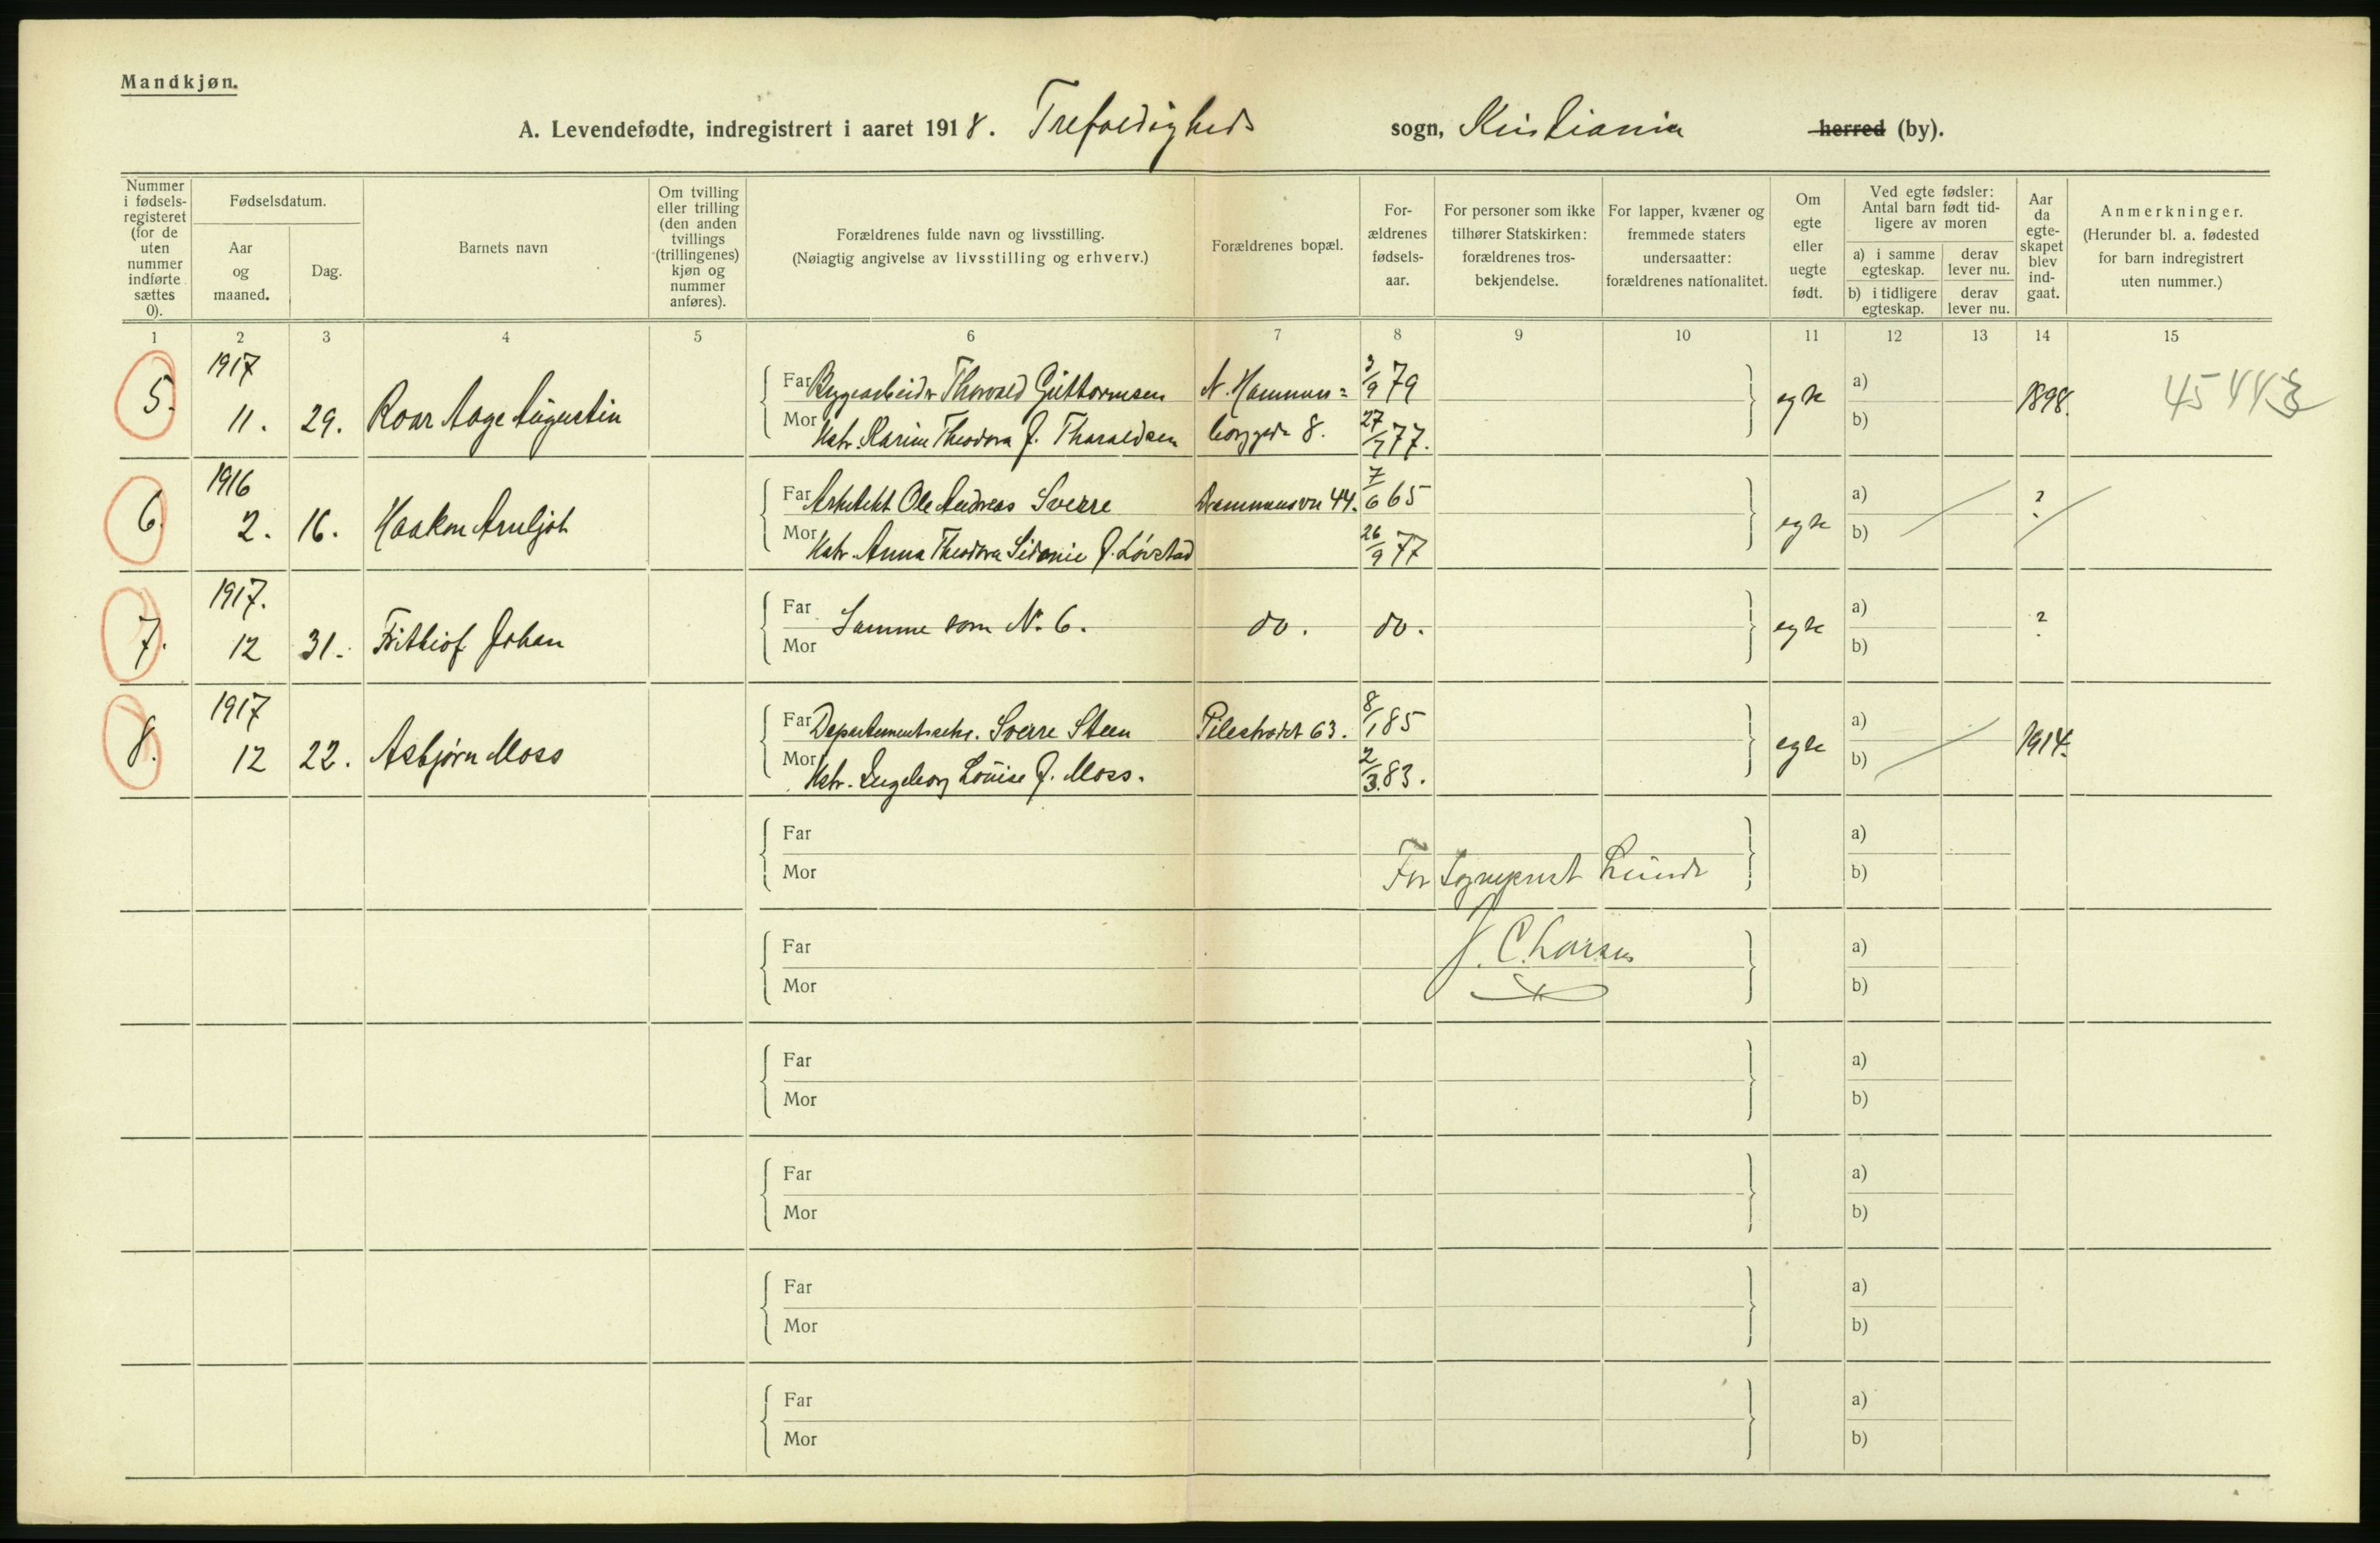 Mandkjøn.
A. Levendefødte, indregistrert i aaret 1918. Trefoldigheds sogn, Kristiania herred (by).
Nummer i fødsels-registeret (for de uten nummer indførte sættes 0).
Fødselsdatum.
Aar og maaned.
Dag.
Barnets navn
Om tvilling eller trilling (den anden tvillings (trillingenes) kjøn og nummer anføres).
Forældrenes fulde navn og livsstilling.
(Nøiagtig angivelse av livsstilling og erhverv.)
Forældrenes bopæl.
For-ældrenes fødsels-aar.
For personer som ikke tilhører Statskirken: forældrenes tros-bekjendelse.
For lapper, kvæner og fremmede staters undersaatter: forældrenes nationalitet.
Om egte eller uegte født.
Ved egte fødsler: Antal barn født tid-ligere av moren
a) i samme egteskap.
derav lever nu.
b) i tidligere egteskap.
derav lever nu.
Aar da egte-skapet blev ind-gaat.
Anmerkninger.
(Herunder bl. a. fødested for barn indregistrert uten nummer.)
1 2 3 4 5 6 7 8 9 10 11 12 13 14 15
5. 1917 11. 29. Roar Aage Augustin
Far Byggearbeider Thorvald Guttormsen N. Hammers= 3/9 79 egte a) 1898.
Mor Hstr. Karin Theodora f. Tharaldsen borggade 8. 27/7 77. b)
6. 1916 2. 16. Haakon Arnljot
Far Arkitekt Ole Andreas Sverre Drammensvn 44. 7/6 65 egte a) ?
Mor Hstr. Anna Theodora Sidonie f. Løvstad 26/9 77 b)
7. 1917. 12 31. Frithiof Johan
Far Mor Samme som N. 6. do. do. egte a) b) ?
8. 1917 12 22. Asbjørn Moss
Far Departementssekr. Sverre Steen Pilestrædet 63. 8/1 85 egte a) 1914.
Mor Hstr. Ingeborg Louise f. Moss. 2/3 83. b)
Far a)
Mor b)
For Sogneprest Lunde
Far a)
J. C. Larsen
Mor b)
Far a)
Mor b)
Far a)
Mor b)
Far a)
Mor b)
Far a)
Mor b)